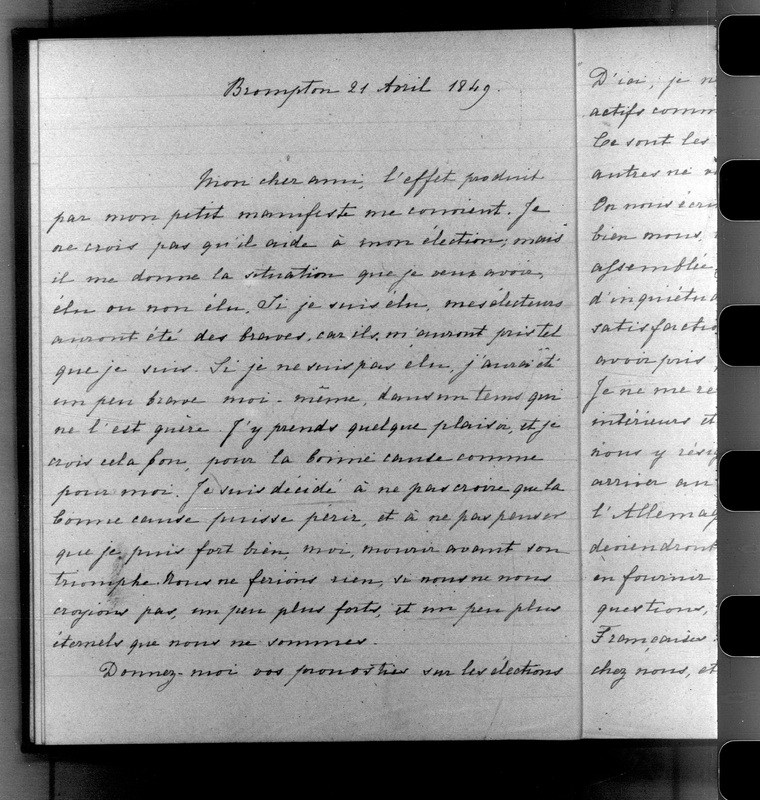 Brompton 21 Avril 1849.
Mon cher ami, l'effet produit
par mon petit manifeste me convient. Je
ne crois pas qu'il aide à mon élection; mais
il me donne la situation que je veux avoir,
élu ou non élu. Si je suis élu, mes électeurs
auront été des braves, car ils m'auront pris tel
que je suis. Si je ne suis pas élu, j'aurai été
un peu brave moi-même, dans un tems qui
ne l'est guère. J'y prends quelque plaisir, et je
crois cela bon, pour la bonne cause comme
pour moi. Je suis décidé à ne pas croire que la
bonne cause puisse périr, et à ne pas penser
que je puis fort bien, moi, mourir avant son
triomphe. Nous ne ferions rien, si nous ne nous
croyions pas, un peu plus forts, et un peu plus
éternels que nous ne sommes.
Donnez-moi vos pronostics sur les élections
D'ici, je n
actifs comm
Ce sont les
autres ne v
On nous écri
bien mous,
assemblée,
d'inquiétud
satisfactio
avoir pris
Je ne me re
intérieurs et
nous y résig
arriver au
l'Allemag
deviendront
en fournir
questions,
Françaises
chez nous, et